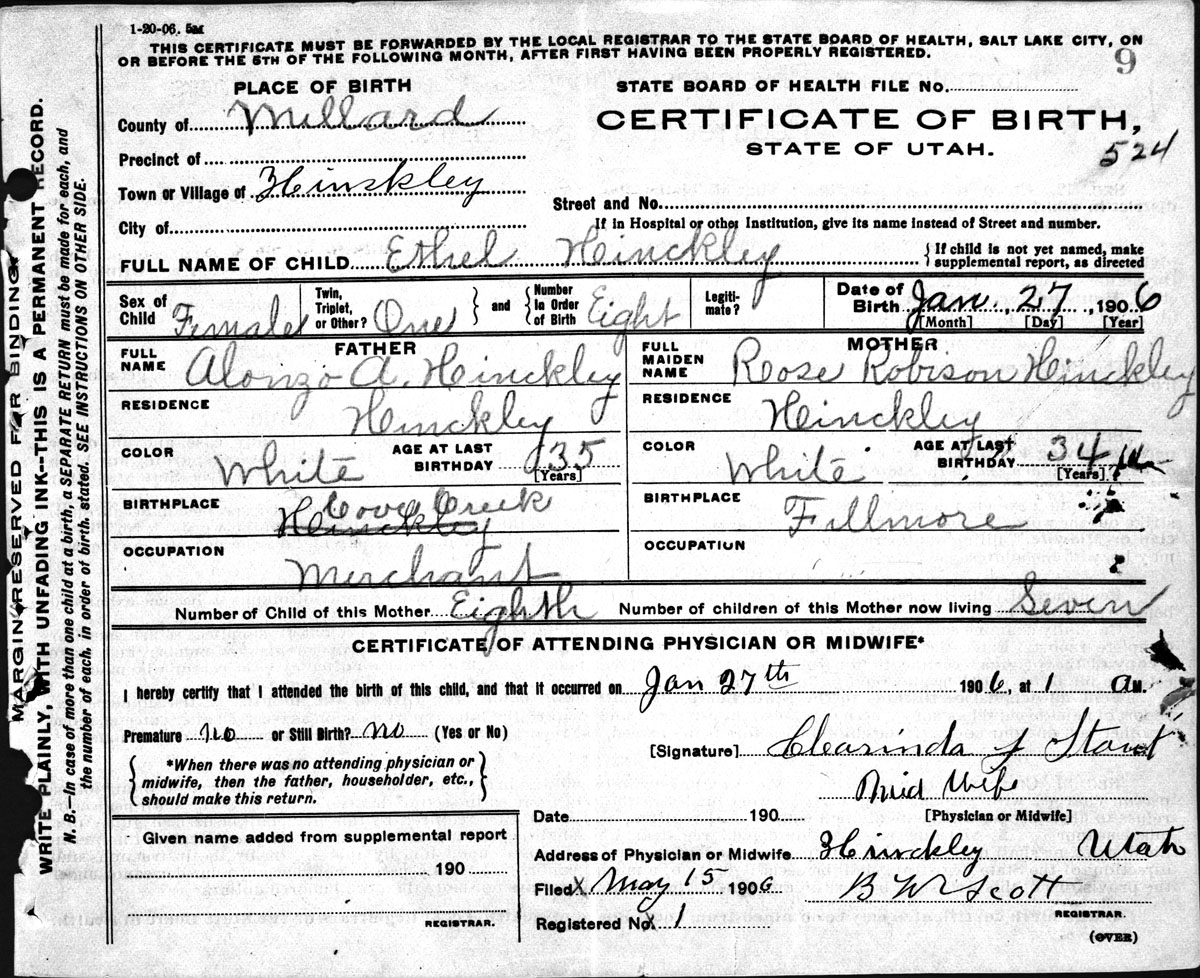 1-20-06. 5M
THIS CERTIFICATE MUST BE FORWARDED BY THE LOCAL REGISTRAR TO THE STATE BOARD OF HEALTH, SALT LAKE CITY, ON
OR BEFORE THE 5TH OF THE FOLLOWING MONTH, AFTER FIRST HAVING BEEN PROPERLY REGISTERED.
9
PLACE OF BIRTH
STATE BOARD OF HEALTH FILE No.
County of Millard
CERTIFICATE OF BIRTH,
STATE OF UTAH.
524
Precinct of
Town or Village of Hinckley
Street and No.
City of
If in Hospital or other Institution, give its name instead of Street and number.
FULL NAME OF CHILD Ethel Hinckley
{If child is not yet named, make
supplemental report, as directed
Sex of Child Female
Twin, Triplet, or Other? One
and
Number In Order of Birth Eight
Legitimate?
Date of Birth Jan. 27, 1906
[Month] [Day] [Year]
FATHER
FULL NAME Alonzo A. Hinckley
RESIDENCE Hinckley
COLOR White
AGE AT LAST BIRTHDAY 35
[Years]
BIRTHPLACE Cove Creek
Hinckley
OCCUPATION
Merchant
MOTHER
FULL MAIDEN NAME Rose Robison Hinckley
RESIDENCE Hinckley
COLOR White
AGE AT LAST BIRTHDAY 34
[Years]
BIRTHPLACE Fillmore
OCCUPATION
Number of Child of this Mother Eighth Number of children of this Mother now living Seven
CERTIFICATE OF ATTENDING PHYSICIAN OR MIDWIFE*
I hereby certify that I attended the birth of this child, and that it occurred on Jan 27th 1906, at 1 AM.
Premature no or Still Birth? no (Yes or No)
*When there was no attending physician or
midwife, then the father, householder, etc.,
should make this return.
[Signature] Clarinda J Stout
Mid Wife
[Physician or Midwife]
Date 190
Given name added from supplemental report
190
REGISTRAR.
Address of Physician or Midwife Hinckley Utah
Filed May 15 1906 B W Scott
REGISTRAR.
Registered No. 1
(OVER)
MARGIN RESERVED FOR BINDING
WRITE PLAINLY, WITH UNFADING INK--THIS IS A PERMANENT RECORD.
N. B.--In case of more than one child at a birth, a SEPARATE RETURN must be made for each, and
the number of each, in order of birth, stated. SEE INSTRUCTIONS ON OTHER SIDE.